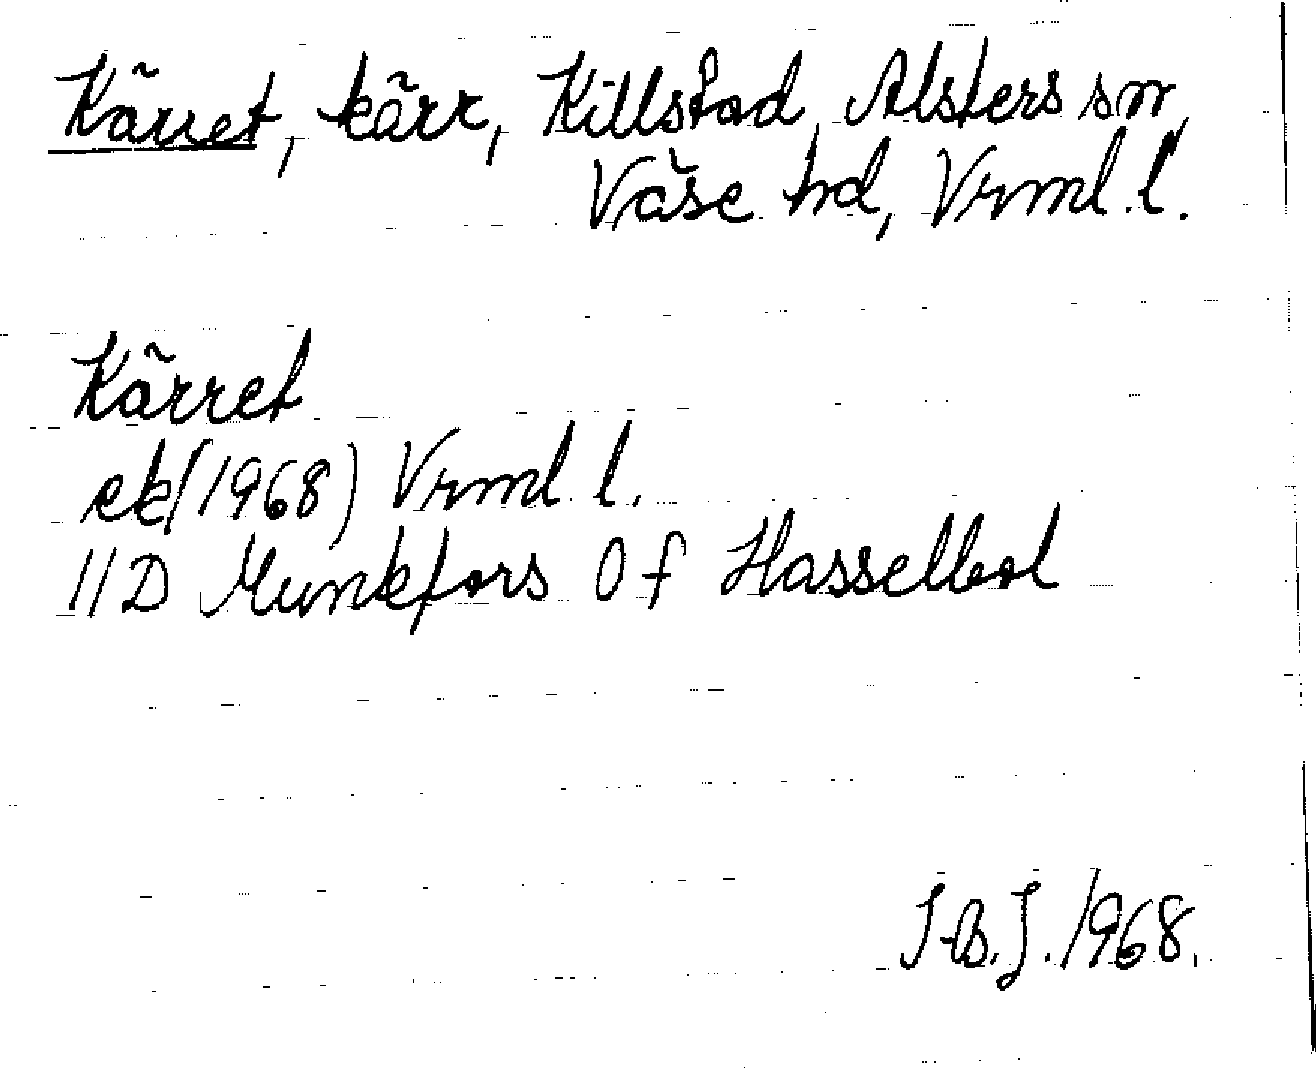 Kärret, kärr, Killstad, Alsters sn,
Väse hd, Vrml. l.
Kärret
ek (1968) Vrml l.
11D Munkfors 0 f Hasselbol
I-B.J. 1968.